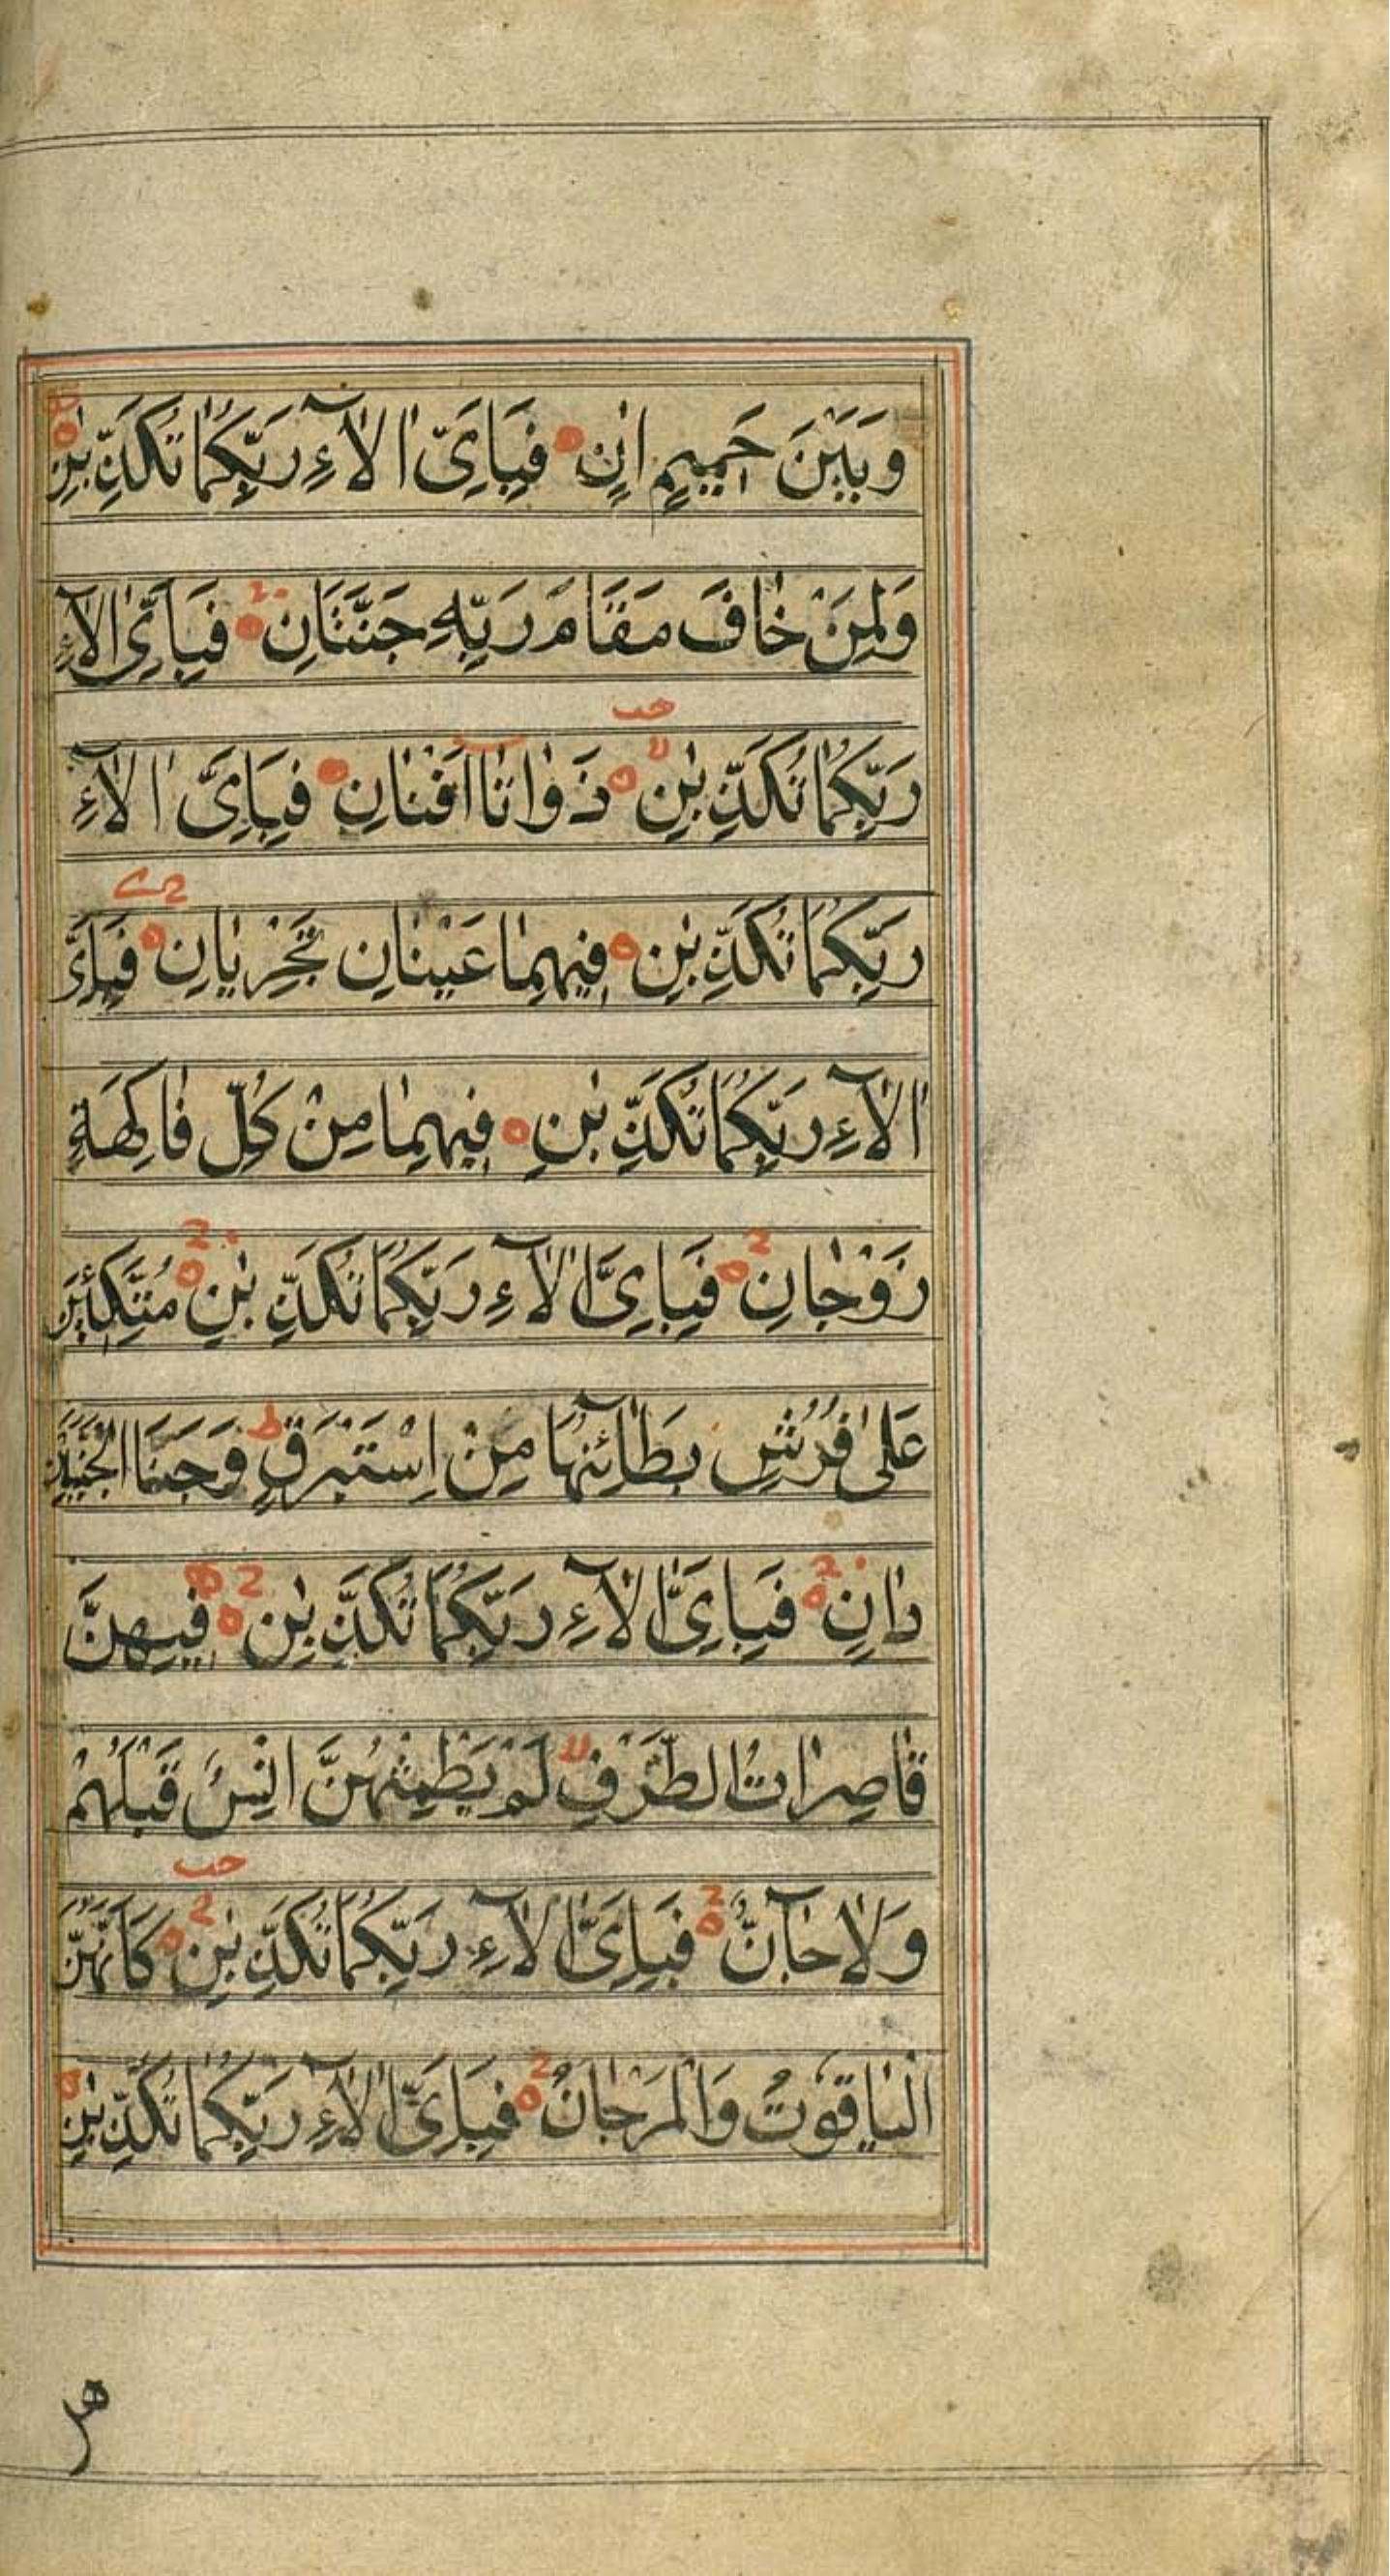 وَبَيْنَ حَمِيمٍ اٰنٍ فَبِاَيِّ اٰلَآءِ رَبِّكُمَا تُكَذِّبٰنِ
وَلِمَنْ خَافَ مَقَامَ رَبِّهِ جَنَّتَانِ فَبِاَيِّ اٰلَآءِ
رَبِّكُمَا تُكَذِّبٰنِ ذَوَاتَآ اَفْنَانِ فَبِاَيِّ اٰلَآءِ
رَبِّكُمَا تُكَذِّبٰنِ فِيهِمَا عَيْنَانِ تَجْرِيَانِ فَبِاَيِّ
اٰلَآءِ رَبِّكُمَا تُكَذِّبٰنِ فِيهِمَا مِنْ كُلِّ فَاكِهَةٍ
زَوْجَانِ فَبِاَيِّ اٰلَآءِ رَبِّكُمَا تُكَذِّبٰنِ مُتَّكِئِينَ
عَلٰى فُرُشٍ بَطَآئِنُهَا مِنْ اِسْتَبْرَقٍ ط وَجَنَا الْجَنَّتَيْنِ
دَانٍ فَبِاَيِّ اٰلَآءِ رَبِّكُمَا تُكَذِّبٰنِ فِيهِنَّ
قَاصِرَاتُ الطَّرْفِ لا لَمْ يَطْمِثْهُنَّ اِنْسٌ قَبْلَهُمْ
وَلَا جَآنٌّ فَبِاَيِّ اٰلَآءِ رَبِّكُمَا تُكَذِّبٰنِ كَاَنَّهُنَّ
الْيَاقُوتُ وَالْمَرْجَانُ فَبِاَيِّ اٰلَآءِ رَبِّكُمَا تُكَذِّبٰنِ
هل